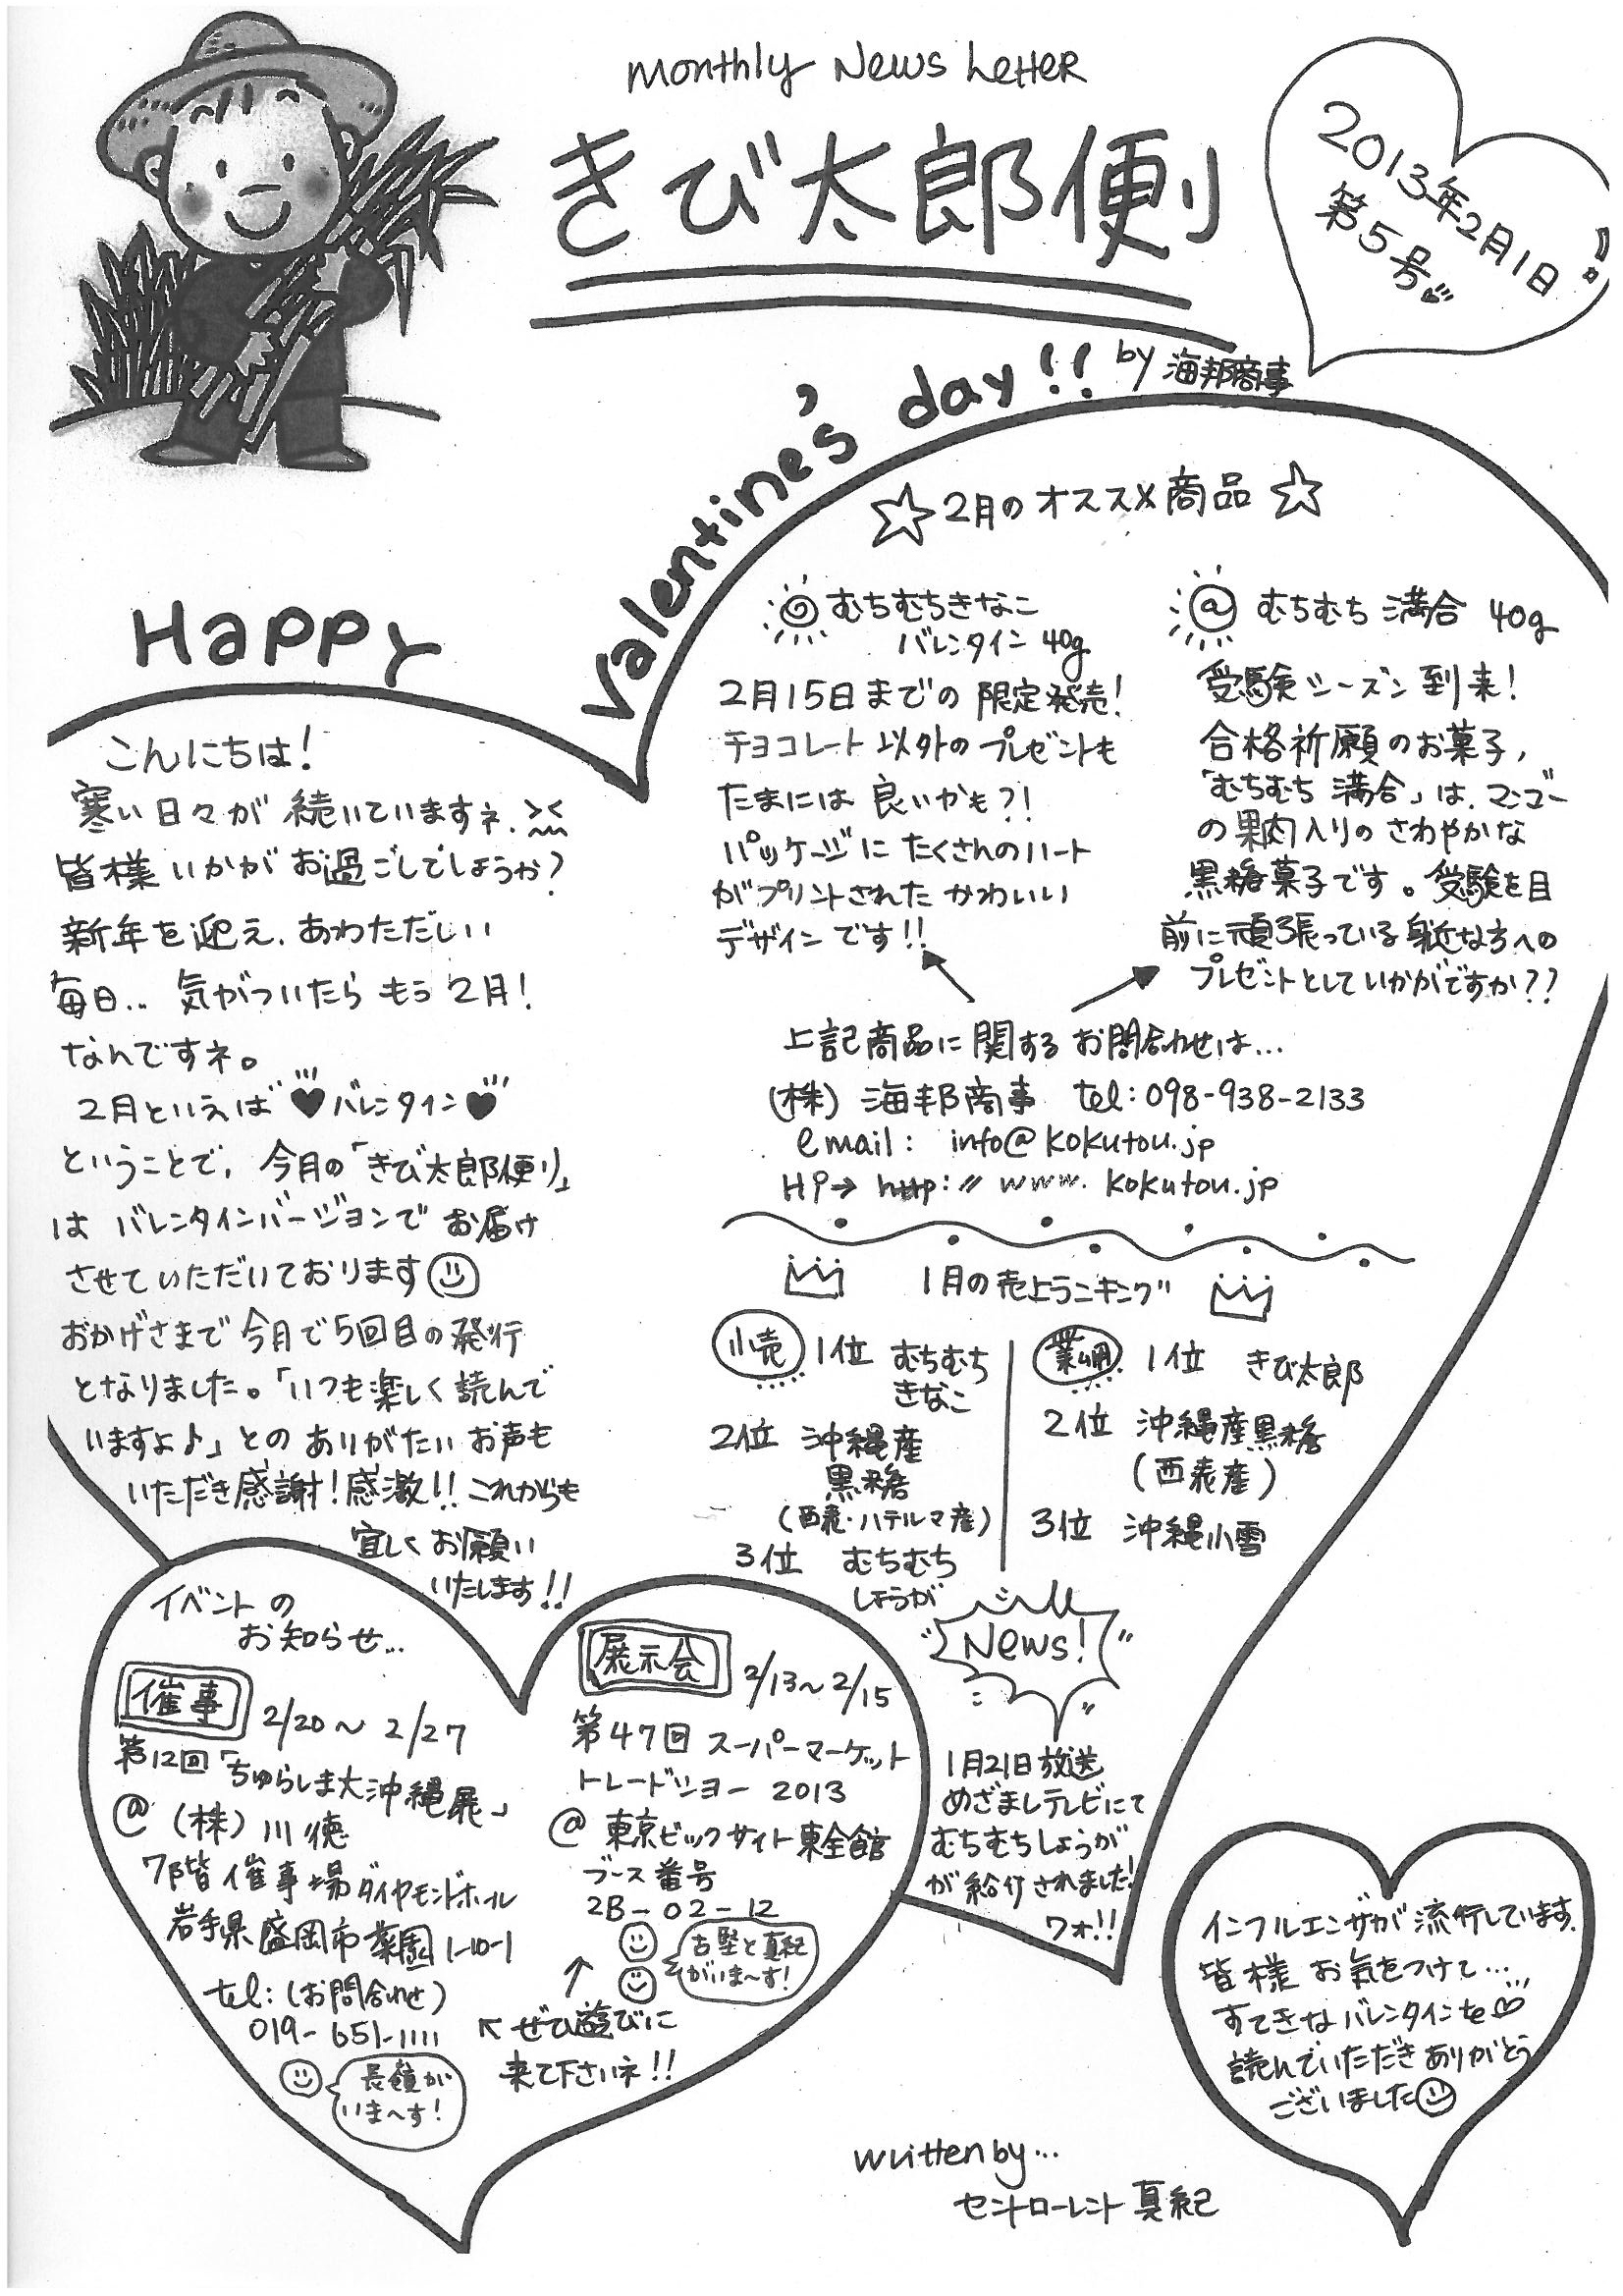 Monthly News Letter
きび太郎便り
2013年2月1日
第5号
by 海邦商事
Happy
Valentine's day!!
こんにちは!
寒い日々が続いていますネ.
皆様いかがお過ごしでしょうか?
新年を迎え、あわただしい
毎日... 気がついたらもう2月!
なんですネ。
2月といえば♥バレンタイン♥
ということで、今月の「きび太郎便り」
はバレンタインバージョンでお届け
させていただいております
おかげさまで今月で5回目の発行
となりました。「いつも楽しく読んで
いますよ♪」とのありがたいお声も
いただき感謝!感激!!これからも
宜しくお願い
いたします!!
☆2月のオススメ商品☆
むちむちきなこ
バレンタイン 40g
2月15日までの限定発売!
チョコレート以外のプレゼントも
たまには良いかも?!
パッケージにたくさんのハート
がプリントされたかわいい
デザインです!!
むちむち満合 40g
受験シーズン到来!
合格祈願のお菓子,
「むちむち満合」は、マンゴー
の果肉入りのさわやかな
黒糖菓子です。受験を目
前に頑張っている身近な方への
プレゼントとしていかがですか??
上記商品に関するお問合わせは...
(株)海邦商事 tel:098-938-2133
email: info@kokutou.jp
HP→ http://www.kokutou.jp
1月の売上ランキング
小売 1位 むちむち
きなこ
2位 沖縄産
黒糖
(西表・ハテルマ産)
3位 むちむち
しょうが
業務用 1位 きび太郎
2位 沖縄産黒糖
(西表産)
3位 沖縄小雪
News!
1月21日放送
めざましテレビにて
むちむちしょうが
が紹介されました!
ワォ!!
イベントの
お知らせ...
催事 2/20~2/27
第12回「ちゅらしま大沖縄展」
@(株)川徳
7階催事場ダイヤモンドホール
岩手県盛岡市菜園1-10-1
tel:(お問合わせ)
019-651-1111
長嶺が
いま~す!
展示会 2/13~2/15
第47回スーパーマーケット
トレードショー2013
@東京ビックサイト東全館
ブース番号
2B-02-12
古堅と真紀
がいま~す!
ぜひ遊びに
来て下さいネ!!
インフルエンザが流行しています.
皆様お気をつけて...
すてきなバレンタインを♡
読んでいただきありがとう
ございました
written by...
セントローレント真紀